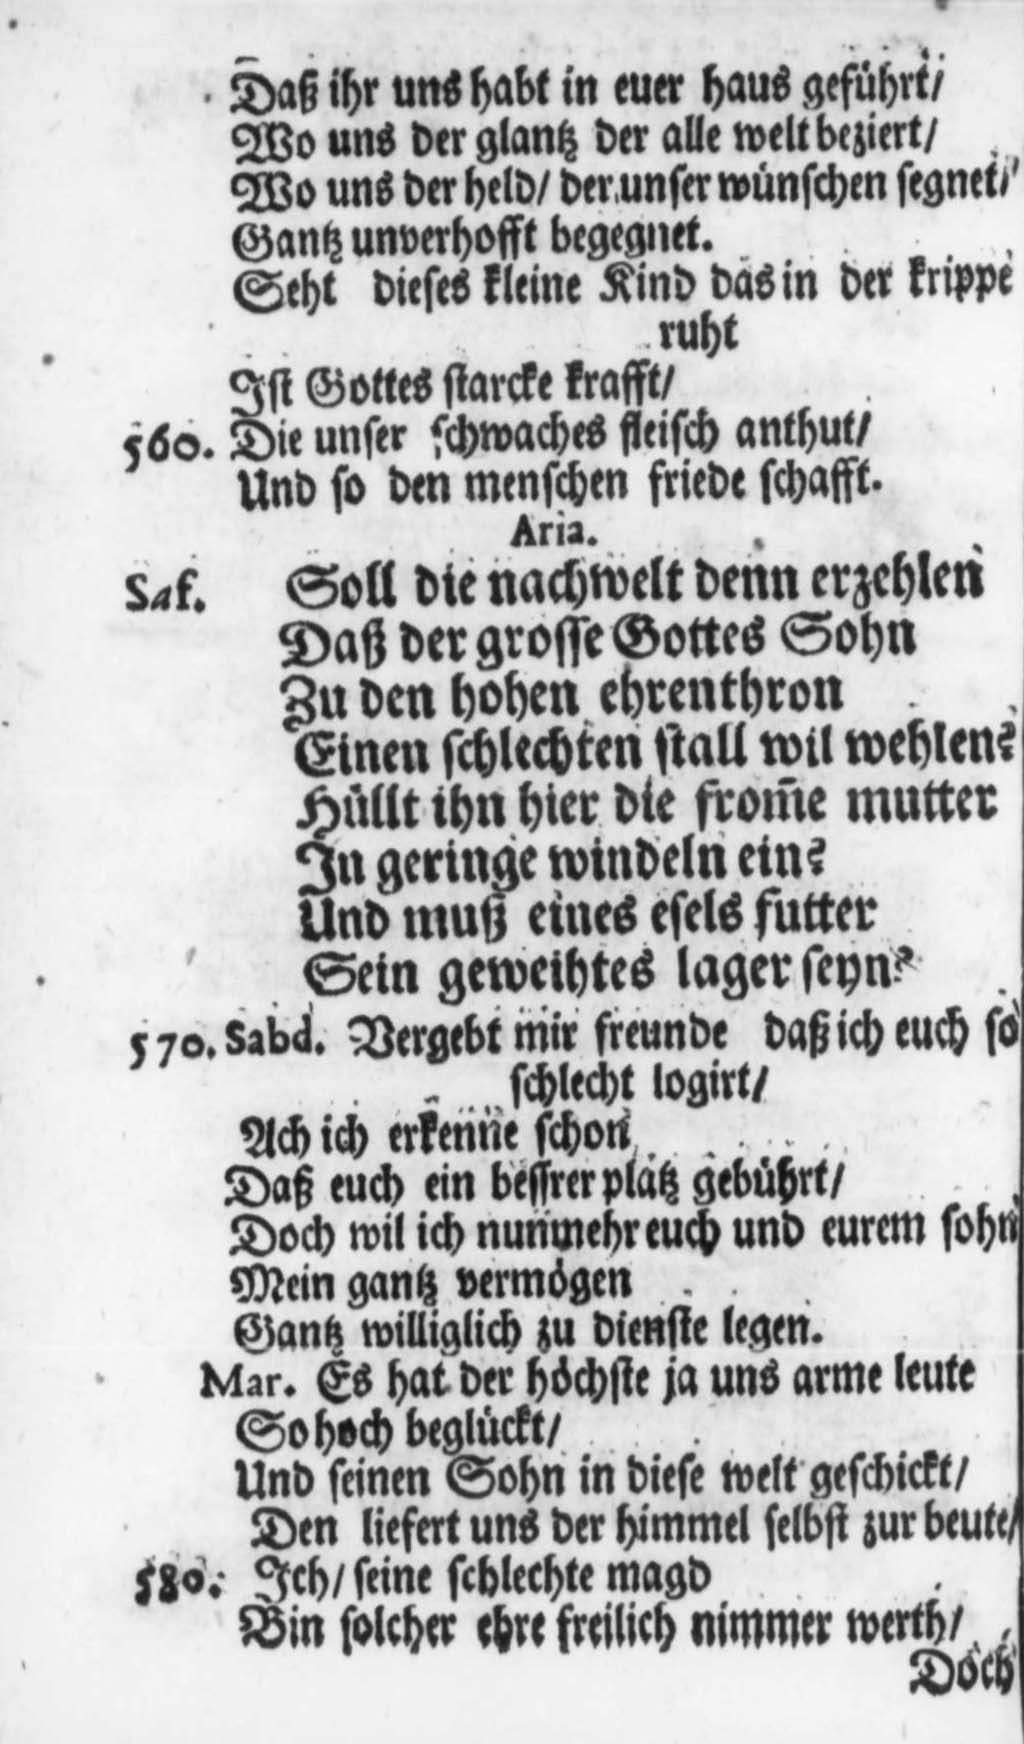 Daß ihr uns habt in euer haus geführt/
Wo uns der glantz der alle welt beziert/
Wo uns der held/ der unser wünschen segnet/
Gantz unverhofft begegnet.
Seht dieses kleine Kind das in der krippe
ruht
Ist Gottes starcke krafft/
560. Die unser schwaches fleisch anthut/
Und so den menschen friede schafft.
Aria.
Sak. Soll die nachwelt denn erzehlen
Daß der grosse Gottes Sohn
Zu den hohen ehrenthron
Einen schlechten stall wil wehlen?
Hüllt ihn hier die from̅e mutter
In geringe windeln ein?
Und muß eines esels futter
Sein geweihtes lager seyn?
570. Sabd. Vergebt mir freunde daß ich euch so
schlecht logirt/
Ach ich erkenne schon
Daß euch ein bessrer platz gebührt/
Doch wil ich nunmehr euch und eurem sohn
Mein gantz vermögen
Gantz williglich zu dienste legen.
Mar. Es hat der höchste ja uns arme leute
So hoch beglückt/
Und seinen Sohn in diese welt geschickt/
Den liefert uns der himmel selbst zur beute/
580. Ich/ seine schlechte magd
Bin solcher ehre freilich nimmer werth/
Doch